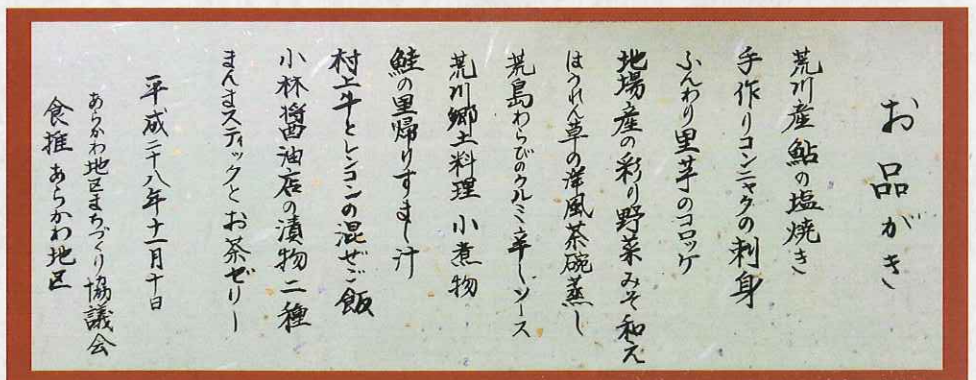 お品がき
荒川産鮎の塩焼き
手作りコンニャクの刺身
ふんわり里芋のコロッケ
地場産の彩り野菜みそ和え
ほうれん草の洋風茶碗蒸し
荒島わらびのクルミ辛しソース
荒川郷土料理 小煮物
鮭の里帰りすまし汁
村上牛とレンコンの混ぜご飯
小林醤油店の漬物二種
まんまスティックとお茶ゼリー
平成二十八年十一月十日
あらかわ地区まちづくり協議会
食推あらかわ地区